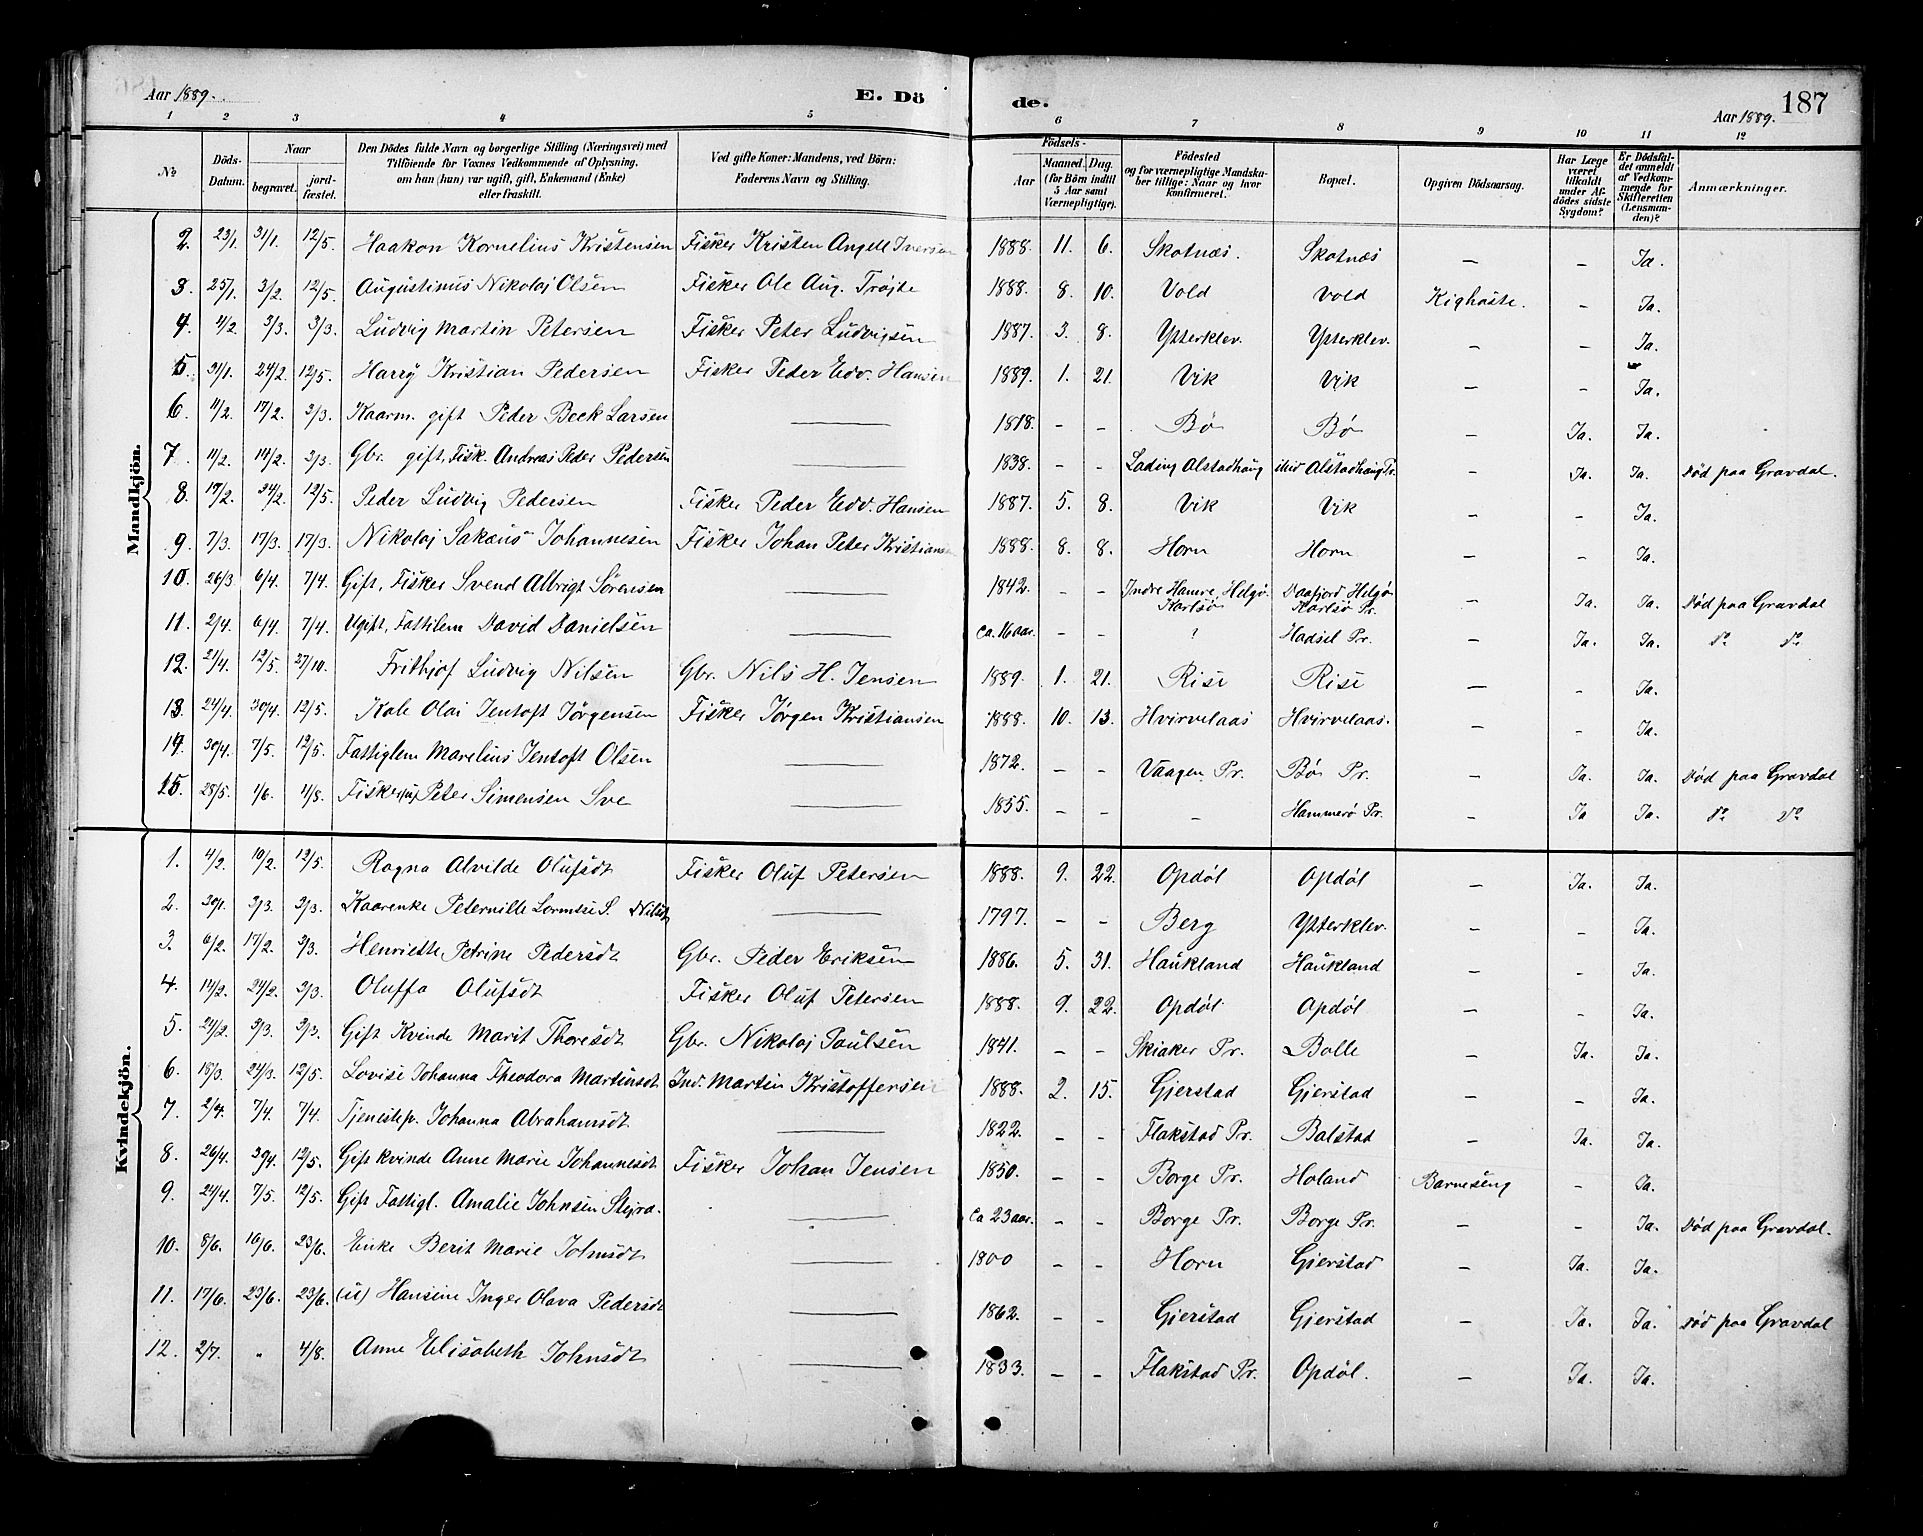 Aar 1889. E. Dö de. Aar 1889. 187
1 2 3 4 5 6 7 8 9 10 11 12
No Döds-Datum. Naar begravet. jordfæstet. Den Dödes fulde Navn og borgerlige Stilling (Næringsvei) med Tilföiende for Voxnes Vedkommende af Oplysning, om han (hun) var ugift, gift, Enkemand (Enke) eller fraskilt. Ved gifte Koner: Mandens, ved Börn: Faderens Navn og Stilling. Födsels- Aar Maaned. Dag. (for Börn indtil 5 Aar samt Værnepligtige). Födested og for værnepligtige Mandskaber tillige: Naar og hvor konfirmeret. Bopæl. Opgiven Dödsaarsag. Har Læge været tilkaldt under Afdödes sidste Sygdom? Er Dödsfaldet anmeldt af Vedkommende for Skifteretten (Lensmanden)? Anmærkninger.
Mandkjön.
2. 23/1. 31/1. 12/5. Haakon Kornelius Kristensen Fisker Kristen Angell Iversen 1888. 11. 6. Skotnæs. Skotnæs — – Ja.
3. 25/1. 3/2. 12/5. Augustinus Nikolaj Olsen Fisker Ole Aug. Trøjte 1888. 8. 10. Vold Vold Kighoste. – Ja.
4. 4/2. 3/3. 3/3. Ludvig Martin Petersen Fisker Peter Ludvigsen 1887. 3. 8. Ytterklev. Ytterklev. — – Ja.
5. 31/1. 24/2. 12/5. Harry Kristian Pedersen Fisker Peder Edv. Hansen 1889. 1. 21. Vik Vik — – Ja.
6. 11/2. 17/2. 3/3. Kaarm. gift Peder Beck Larsen — 1818. – – Bø Bø — Ja. Ja.
7. 11/2. 14/2. 3/3. Gbr. gift, Fisk. Andreas Peder Pedersen — 1838. – – Lading Alstadhaug Alstadhaug Pr. — Ja. Ja. Død paa Gravdal.
8. 19/2. 24/2. 12/5. Peder Ludvig Pedersen Fisker Peder Edv. Hansen 1887. 5. 8. Vik Vik — – Ja.
9. 7/3. 17/3. 17/3. Nikolaj Sakæus Johannesen Fisker Johan Peter Kristiansen 1888. 8. 8. Horn Horn — – Ja.
10. 26/3. 6/4. 7/4. Gift, Fisker Svend Albrigt Sörensen — 1842. – – Indre Hamre, Helgø Karlsø Daafjord Helgø Karlsø Pr. — Ja. Ja. Død paa Gravdal
11. 2/4. 6/4. 7/4. Ugift, Fattilem David Danielsen — ca. 16 aar. – – ? Hadsel Pr. — Ja. Ja. do do
12. 21/4. 12/5. 27/10. Frithjof Ludvig Nilsen Gbr. Nils H. Jensen 1889. 1. 21. Rise Rise — – Ja.
13. 24/4. 30/4. 12/5. Kole Olai Jentoft Jørgensen Fisker Jørgen Kristiansen 1888. 10. 13. Hvirvelaas Hvirvelaas. — – Ja.
14. 30/4. 7/5. 12/5. Fattiglem Marelius Jentoft Olsen — 1872. – – Vaagen Pr. Bø Pr. — Ja. Ja. Død paa Gravdal
15. 28/5. 1/6. 4/8. Fisker (u) Peter Simensen Sve — 1855. – – – Hammerø Pr. — Ja Ja. do do
Kvindekjön.
1. 4/2. 10/2. 12/5. Ragna Alvilde Olufsdt Fisker Oluf Petersen 1888. 9. 22. Opdøl Opdøl — Ja. Ja.
2. 30/1. 3/3. 3/3. Kaarenke Peternille S. Nilsdt — 1797. – – Berg Ytterklev. — – Ja.
3. 6/2. 17/2. 3/3. Henriette Petrine Pedersdt Gbr. Peder Eriksen 1886. 5. 31. Haukland Haukland — – Ja.
4. 14/2. 24/2. 3/3. Oluffa Olufsdt Fisker Oluf Petersen 1888. 9. 22. Opdøl Opdøl — – Ja.
5. 24/2. 3/3. 3/3. Gift Kvinde Marit Thoresdt Gbr. Nikolaj Paulsen 1841. – – Skiaker Pr. Bolle — Ja. Ja.
6. 18/3. 24/3. 12/5. Lovise Johanna Theodora Martinsdt. Ind. Martin Kristoffersen 1888. 2. 15. Gjerstad Gjerstad — – Ja.
7. 2/4. 7/4. 7/4. Tjenestep. Johanna Abrahamsdt — 1822. – – Flakstad Pr. Balstad — Ja. Ja.
8. 26/4. 30/4. 12/5. Gift kvinde Anne Marie Johannesdt Fisker Johan Jensen 1850. – – Borge Pr. Holand Barneseng – Ja.
9. 24/4. 7/5. 12/5. Gift Fattigl. Amalie Johnsen — ca 23 aar. – – Borge Pr. Borge Pr. — – Ja. Død paa Gravdal.
10. 8/6. 16/6. 23/6. Enke Berit Marie Johnsdt — 1800 – – Horn Gjerstad — Ja. Ja.
11. 17/6. 23/6. 23/6. (u) Hansine Inger Olava Pedersdt — 1862. – – Gjerstad Gjerstad — Ja. Ja. Død paa Gravdal
12. 2/7. „ 4/8. Anne Elisabeth Johnsdt — 1833. – – Flakstad Pr. Opdøl. — Ja. Ja.